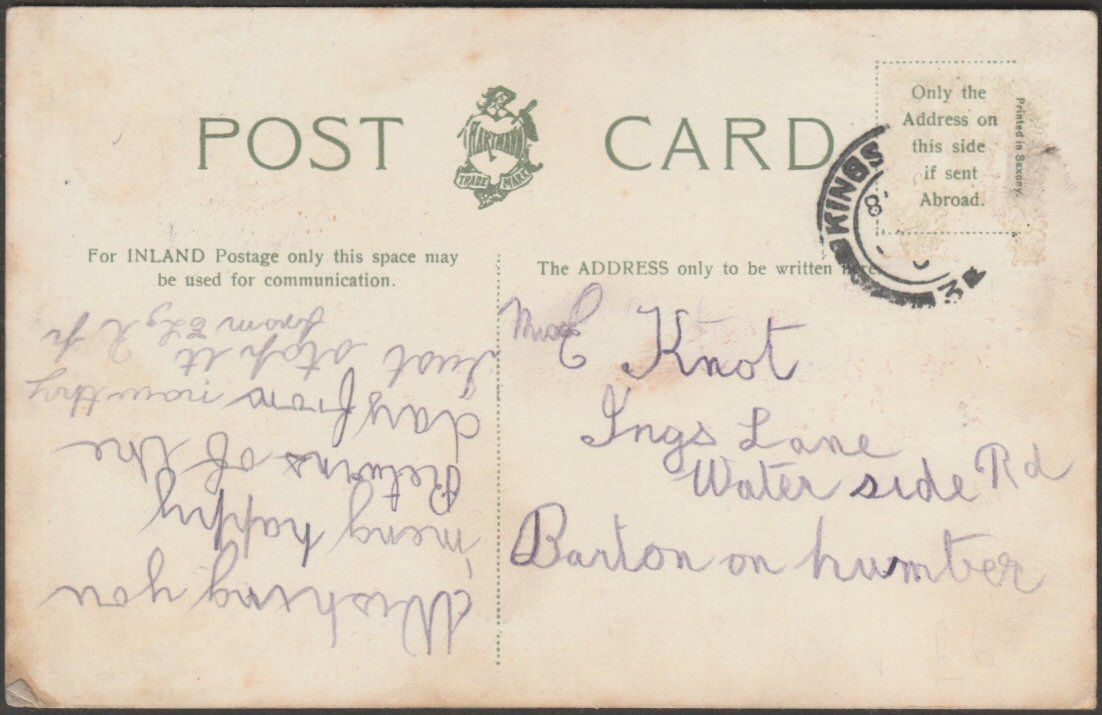 POST CARD
HARTMANN
TRADE MARK
Only the
Address on
this side
if sent
Abroad.
Printed in Saxony
KINGS
8
For INLAND Postage only this space may
be used for communication.
The ADDRESS only to be written here
Miss E Knot
Ings Lane
Water side Rd
Barton on humber
Wishing you
meny happy
Returns of the
day from
Just stop it
from